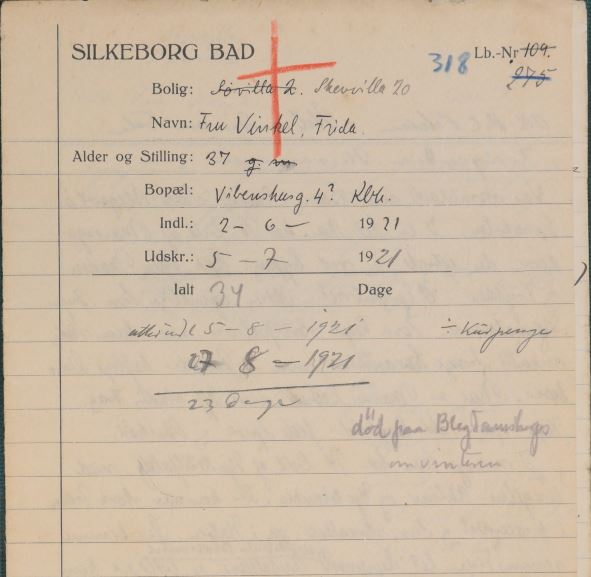 SILKEBORG BAD 318 Lb.-Nr 109.
275
Bolig: Søvilla 2. Skovvilla 20
Navn: Fru Vinkel, Frida.
Alder og Stilling: 37 g. m
Bopæl: Vibenshusg. 4² Kbh.
Indl.: 2 - 6 - 1921
Udskr.: 5 - 7 1921
Ialt 34 Dage
5 - 8 - 1921 ÷ Kurpenge
27 8 - 1921
23 Dage
død paa Blegdamshosp
om vinteren